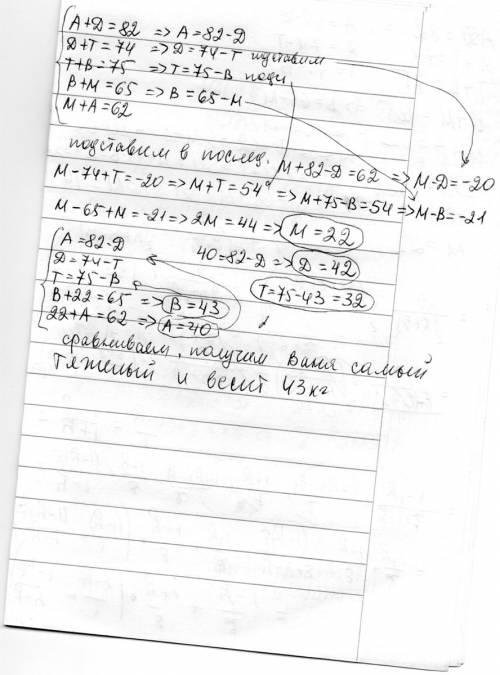 А+D=82 => А=82-D
D+T=74 => D=74-T подставим
T+B=75 => T=75-B подст
B+M=65 => B=65-M
M+A=62
подставим в послед. M+82-D=62 => M-D=-20
M-74+T=-20 => M+T=54 => M+75-B=54 => M-B=-21
M-65+M=-21 => 2M=44 => M=22
A=82-D 40=82-D => D=42
D=74-T
T=75-B T=75-43=32
B+22=65 => B=43
22+A=62 => A=40
сравниваем, получим Ваня самый
тяжелый и весит 43кг